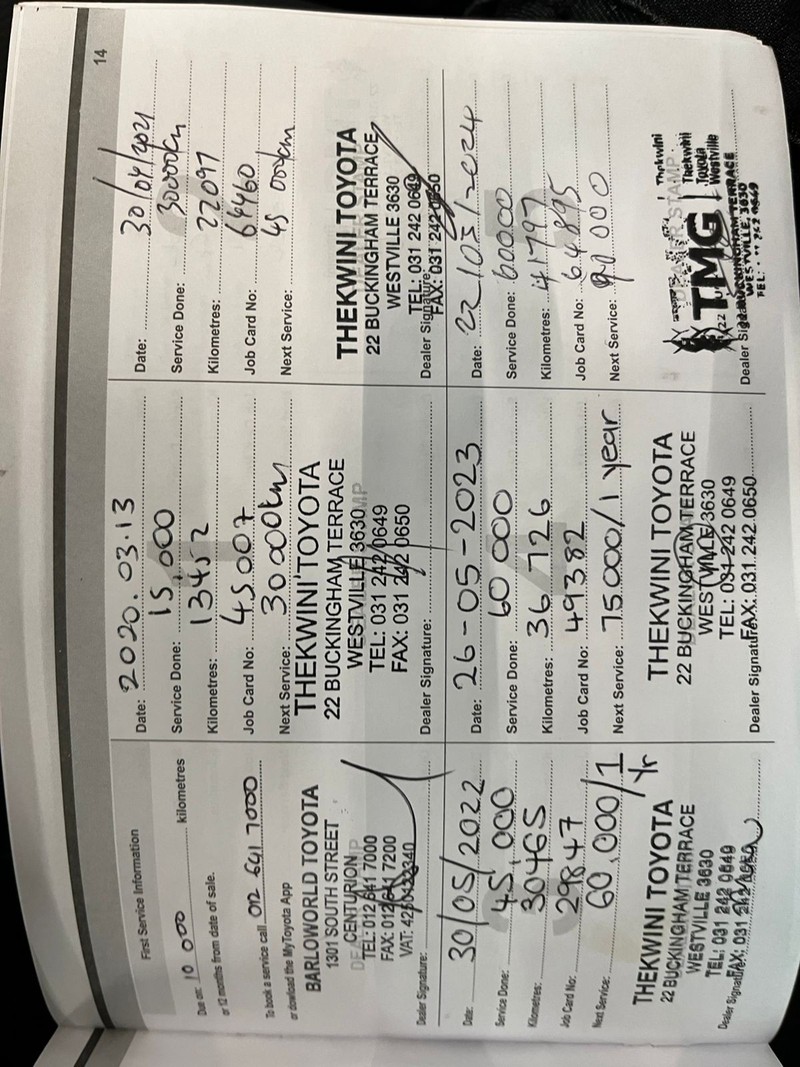 14
First Service Information
Due on: 10 000 kilometres
or 12 months from date of sale.
To book a service call 012 641 7000
or dowload the MyToyota App
BARLOWORLD TOYOTA
1301 SOUTH STREET
CENTURION
TEL: 012 641 7000
FAX: 012 641 7200
VAT:
Dealer Signature:
Date: 2020.03.13
Service Done: 15,000
Kilometres: 13452
Job Card No: 45007
Next Service: 30000km
THEKWINI TOYOTA
22 BUCKINGHAM TERRACE
WESTVILLE 3630
TEL: 031 242 0649
FAX: 031 242 0650
Dealer Signature:
Date: 30/04/2021
Service Done: 30000km
Kilometres: 22097
Job Card No: 64460
Next Service: 45 000km
THEKWINI TOYOTA
22 BUCKINGHAM TERRACE
WESTVILLE 3630
TEL: 031 242 0649
FAX: 031 242 0650
Dealer Signature:
Date: 30/05/2022
Service Done: 45,000
Kilometres: 30465
Job Card No: 29847
Next Service: 60,000/1 Yr
THEKWINI TOYOTA
22 BUCKINGHAM TERRACE
WESTVILLE 3630
TEL: 031 242 0649
FAX: 031 242 0650
Dealer Signature:
Date: 26-05-2023
Service Done: 60 000
Kilometres: 36 726
Job Card No: 49382
Next Service: 75.000/1 year
THEKWINI TOYOTA
22 BUCKINGHAM TERRACE
WESTVILLE 3630
TEL: 031 242 0649
FAX: 031 242 0650
Dealer Signature:
Date: 22/05/2024
Service Done: 60000
Kilometres: 41797
Job Card No: 64895
Next Service: 90 000
DEALER STAMP
TMG Thekwini
Toyota
Westville
22 BUCKINGHAM TERRACE
WESTVILLE, 3630
Dealer